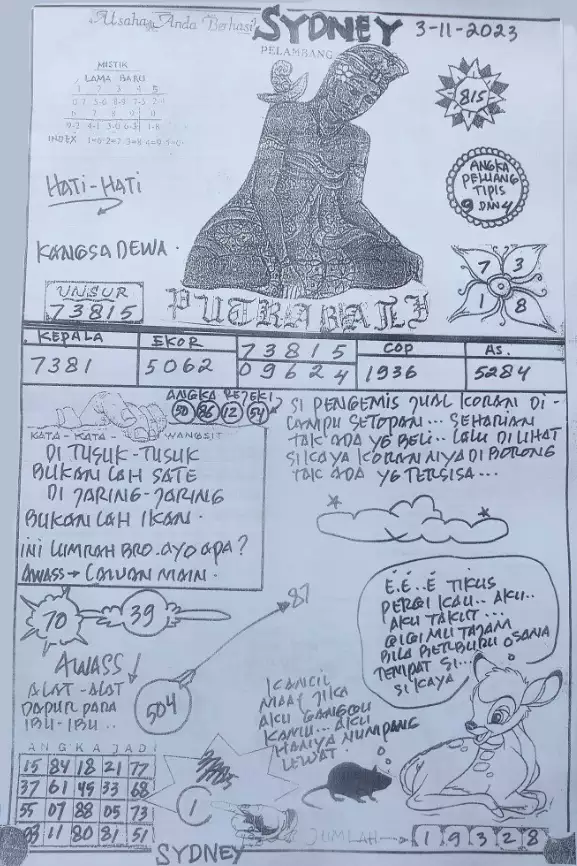 Usaha Anda Berhasil
SYDNEY
3-11-2023
PELAMBANG
MISTIK
LAMA BARU
1 2 3 4 5
6 7 8 9 0
INDEX
815
ANGKA
PELUANG
TIPIS
9 DAN 4
HATI-HATI
KANGSA DEWA.
7 3
1 8
UNSUR
73815
PUTRA BALI
KEPALA
7381
EKOR
5062
73815
09624
COP
1936
AS.
5284
ANGKA REJEKI
50 86 12 54
KATA-KATA WANGSIT
DI TUSUK-TUSUK
BUKAN LAH SATE
DI JARING-JARING
BUKAN LAH IKAN.
INI LUMRAH BRO. AYO APA?
AWASS → LAWAN MAIN.
SI PENGEMIS JUAL KORAN DI-
LAMPU SETOPAN... SEHARIAN
TAK ADA YG BELI.. LALU DI LIHAT
SI KAYA KORAN NIYA DI BORONG
TAK ADA YG TERSISA...
70 39
87
AWASS!
ALAT-ALAT
DAPUR PARA
IBU-IBU..
504
E.E..E TIKUS
PERGI KAU.. AKU..
AKU TAKUT...
GIGI MU TAJAM
BILA BERBURU DSANA
TEMPAT SI...
SI KAYA
KANCIL
MAAF JIKA
AKU GANGGU
KAMU... AKU
HANYA NUMPANG
LEWAT.
ANGKA JADI
15 84 18 21 77
37 61 45 33 68
55 07 88 05 73
11 80 81 51
1
JUMLAH → 1 9 3 2 8
SYDNEY